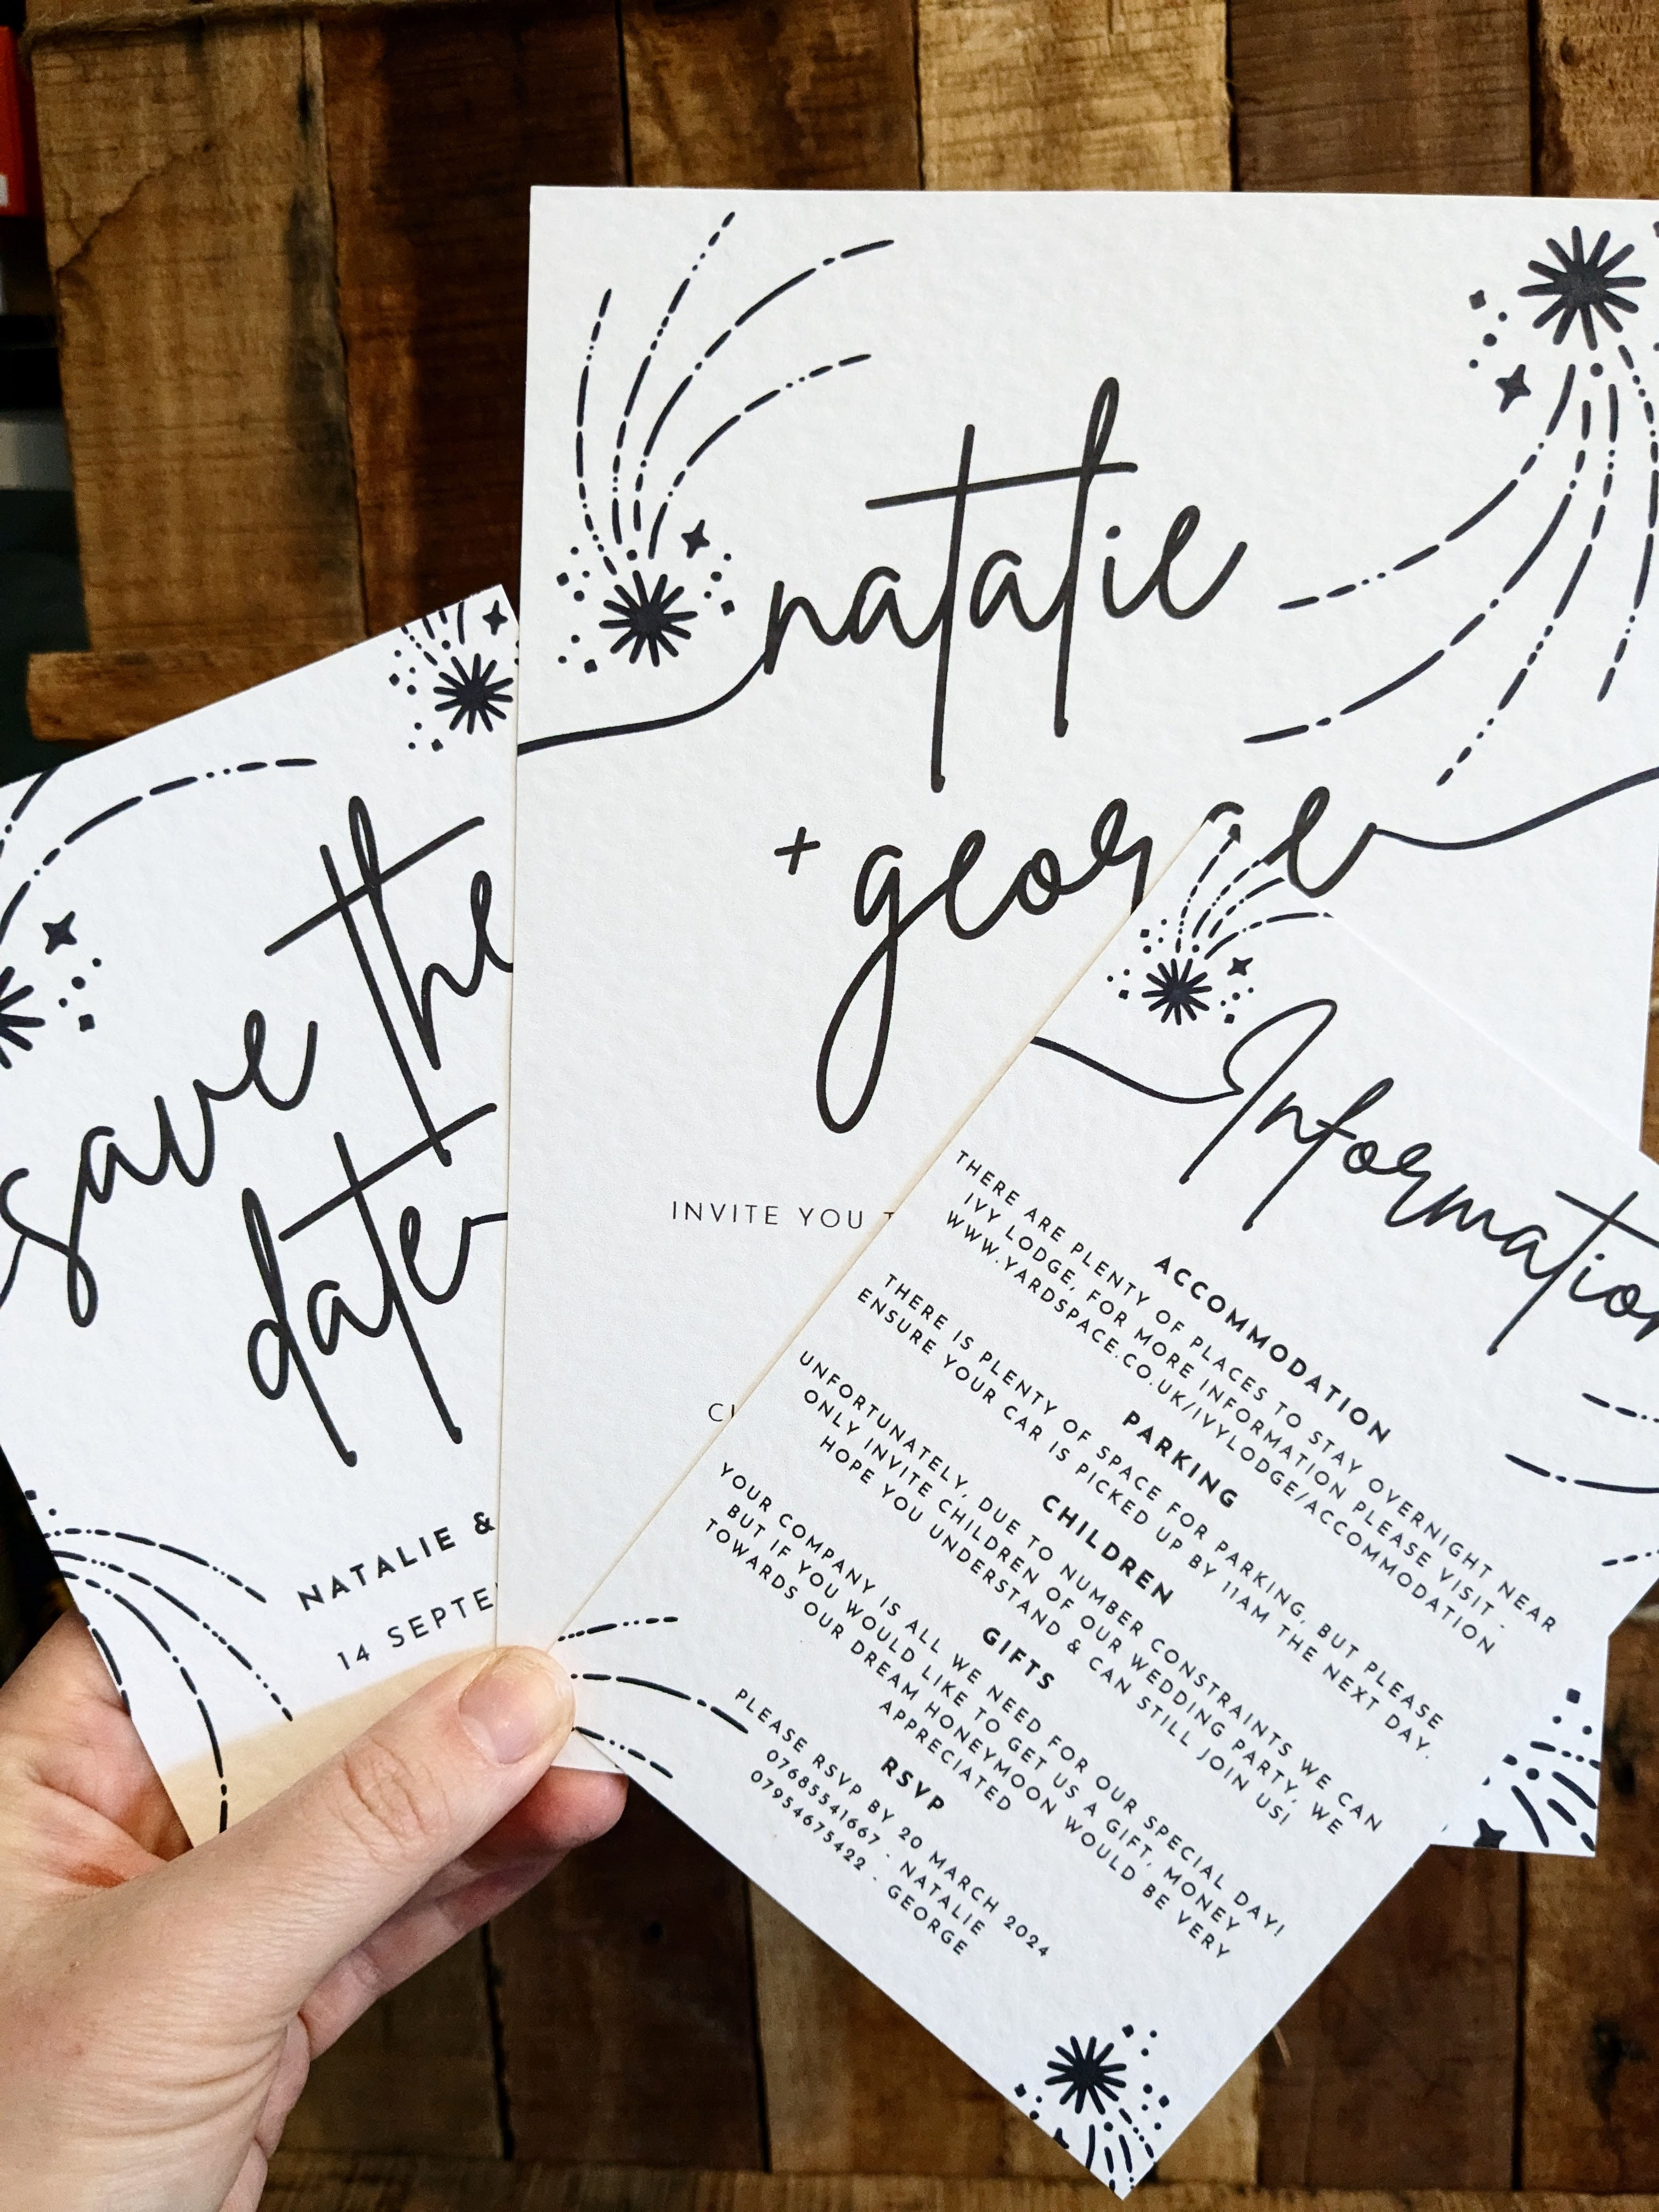 save the
date
NATALIE &
14 SEPTE
natalie
+ george
INVITE YOU
Information
ACCOMMODATION
THERE ARE PLENTY OF PLACES TO STAY OVERNIGHT NEAR
IVY LODGE, FOR MORE INFORMATION PLEASE VISIT -
WWW.YARDSPACE.CO.UK/IVYLODGE/ACCOMMODATION
PARKING
THERE IS PLENTY OF SPACE FOR PARKING, BUT PLEASE
ENSURE YOUR CAR IS PICKED UP BY 11AM THE NEXT DAY.
CHILDREN
UNFORTUNATELY, DUE TO NUMBER CONSTRAINTS WE CAN
ONLY INVITE CHILDREN OF OUR WEDDING PARTY, WE
HOPE YOU UNDERSTAND & CAN STILL JOIN US!
GIFTS
YOUR COMPANY IS ALL WE NEED FOR OUR SPECIAL DAY!
BUT IF YOU WOULD LIKE TO GET US A GIFT, MONEY
TOWARDS OUR DREAM HONEYMOON WOULD BE VERY
APPRECIATED
RSVP
PLEASE RSVP BY 20 MARCH 2024
07685541667 - NATALIE
07954675422 - GEORGE